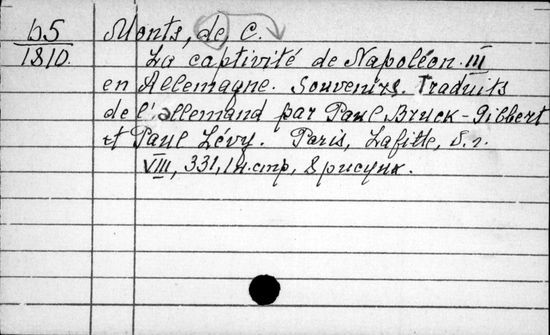 Б5
1810.
Monts, de, C.
La captivité de Napoléon III
en Allemagne. Souvenirs. Traduits
de l'allemand par Paul Bruck-Gibbert
et Paul Lévy. Paris, Lafitte, s. a.
VIII, 331, 1 н. стр., 8 рисунк.